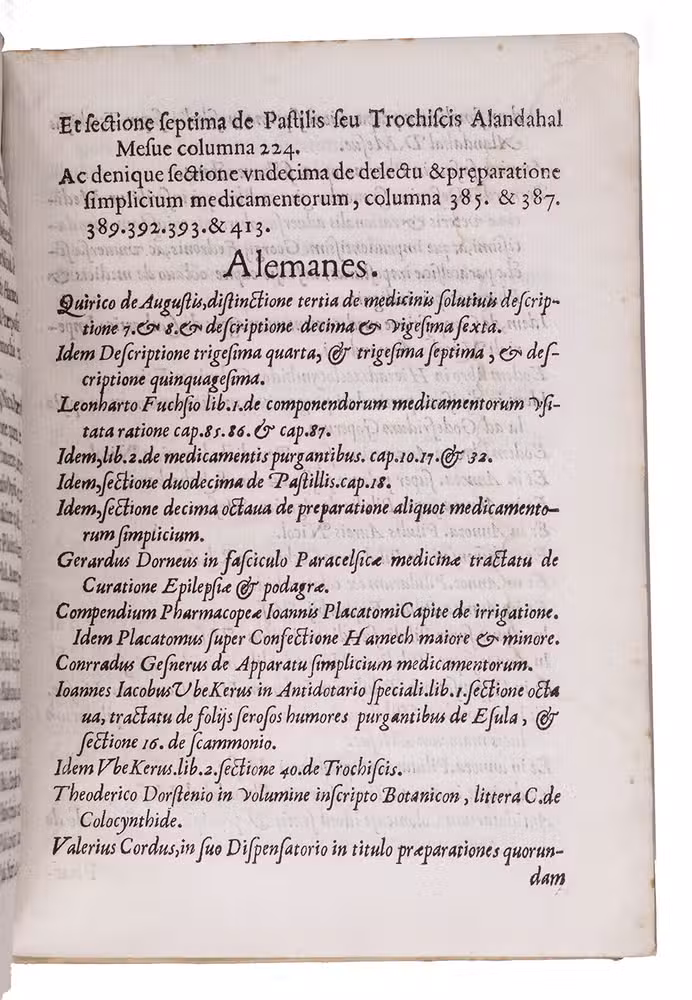 Et ſectione ſeptima de Paſtilis ſeu Trochiſcis Alandahal
Meſue columna 224.
Ac denique ſectione vndecima de delectu & pręparatione
ſimplicium medicamentorum, columna 385. & 387.
389.392.393.& 413.
Alemanes.
Quirico de Auguſtis,diſtinctione tertia de medicinis ſolutiuis deſcrip-
tione 7.& 8.& deſcriptione decima & vigeſima ſexta.
Idem Deſcriptione trigeſima quarta, & trigeſima ſeptima, & deſ-
criptione quinquageſima.
Leonharto Fuchſio lib.1.de componendorum medicamentorum vſi-
tata ratione cap.85.86.& cap.87.
Idem,lib.2.de medicamentis purgantibus. cap.10.17.& 32.
Idem,ſectione duodecima de Paſtillis.cap.18.
Idem,ſectione decima octaua de preparatione aliquot medicamento-
rum ſimplicium.
Gerardus Dorneus in faſciculo Paracelſicæ medicinæ tractatu de
Curatione Epilepſiæ & podagræ.
Compendium Pharmacopeæ Ioannis Placatomi Capite de irrigatione.
Idem Placatomus ſuper Confectione Hamech maiore & minore.
Conrradus Geſnerus de Apparatu ſimplicium medicamentorum.
Ioannes Iacobus VbeKerus in Antidotario ſpeciali.lib.1.ſectione octa
ua, tractatu de folijs ſeroſos humores purgantibus de Eſula, &
ſectione 16. de ſcammonio.
Idem VbeKerus.lib.2.ſectione 40.de Trochiſcis.
Theoderico Dorſtenio in volumine inſcripto Botanicon, littera C.de
Colocynthide.
Valerius Cordus,in ſuo Diſpenſatorio in titulo præparationes quorun-
dam